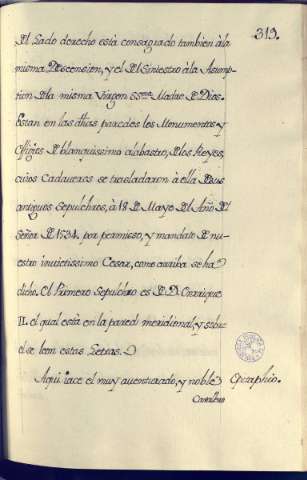 313.
El Lado derecho està consagrado tambien à la
misma Descension, y el D el Siniestro à la Asump-
tion D la misma Virgen SSma. Madre D Dios.
Estan en las dhas paredes los Monumentos y
Effigies D blanquissimo alabastro, D los Reyes,
cuios Cadaueres se trasladaron à ella D sus
antiguos Sepulchros, à 18 D Mayo D el Año D el
Señor D 1534. por permisso, y mandato D nu-
estro inuictissimo Cesar, como arriba se ha
dicho. El Primero Sepulchro es D D. Enrrique
II. el qual està en la pared meridional, y sobre
el se leen estas Letras.
Aqui iace el muy auenturado, y noble Epitaphio.
Caualle